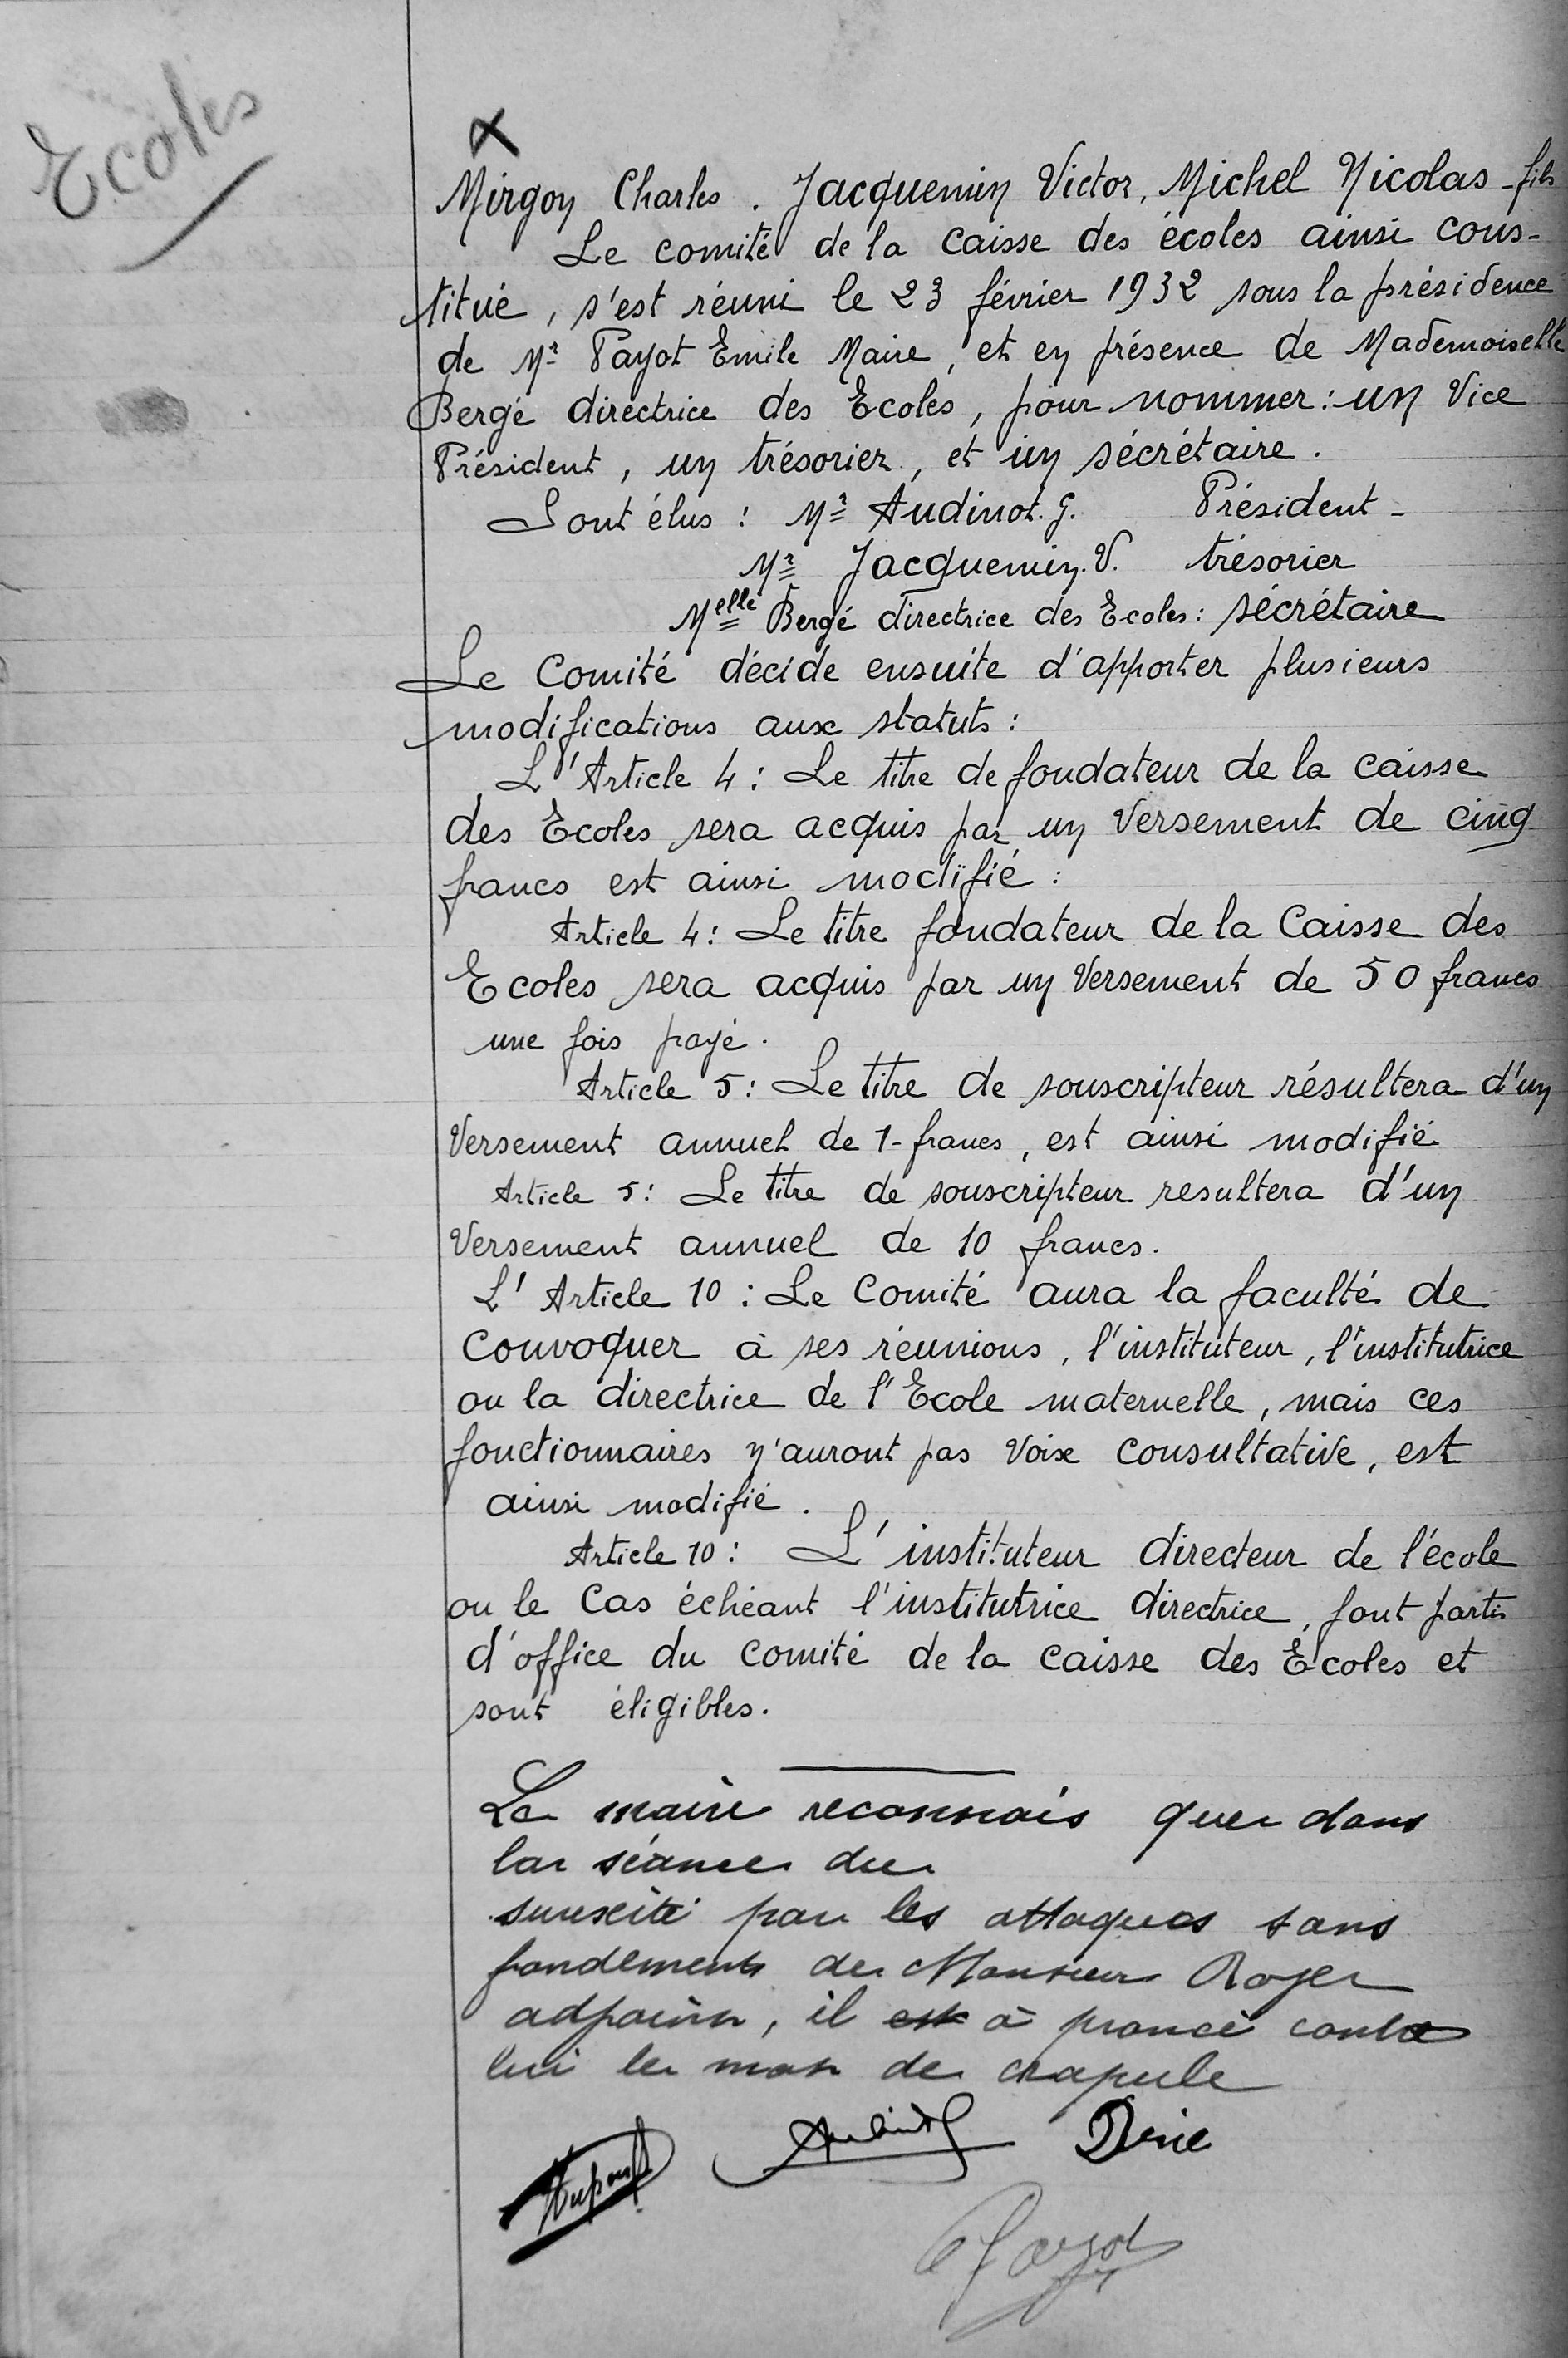 Ecoles
Mirgon Charles. Jacquemin Victor, Michel Nicolas - fils
Le comité de la caisse des écoles ainsi cons-
titué, s'est réuni le 23 février 1932 sous la présidence
de Mr Payot Emile Maire, et en présence de Mademoiselle
Bergé directrice des Ecoles, pour nommer : un Vice
Président, un trésorier, et un sécrétaire.
Sont élus : Mr Audinot. G. Président -
Mr Jacquemin. V. trésorier
Melle Bergé directrice des Ecoles : sécrétaire
Le Comité décide ensuite d'apporter plusieurs
modifications aux statuts :
L'Article 4 : Le titre de fondateur de la caisse
des Ecoles sera acquis par un Versement de cinq
francs est ainsi modifié :
Article 4 : Le titre fondateur de la Caisse des
Ecoles sera acquis par un Versement de 50 francs
une fois payé.
Article 5 : Le titre de souscripteur résultera d'un
Versement annuel de 1 - francs, est ainsi modifié
Article 5 : Le titre de souscripteur resultera d'un
Versement annuel de 10 francs.
L'Article 10 : Le Comité aura la faculté de
convoquer à ses réunions, l'instituteur, l'institutrice
ou la directrice de l'Ecole maternelle, mais ces
fonctionnaires n'auront pas Voix consultative, est
ainsi modifié.
Article 10 : L'instituteur directeur de l'école
ou le Cas échéant l'institutrice directrice, font partis
d'office du comité de la caisse des Ecoles et
sont éligibles.
Le maire reconnais que dans
la séance du
surexité par les attaques sans
fondements de Monsieur Roger
adjoint, il est à pronocé contre
lui le mot de crapule
Payot